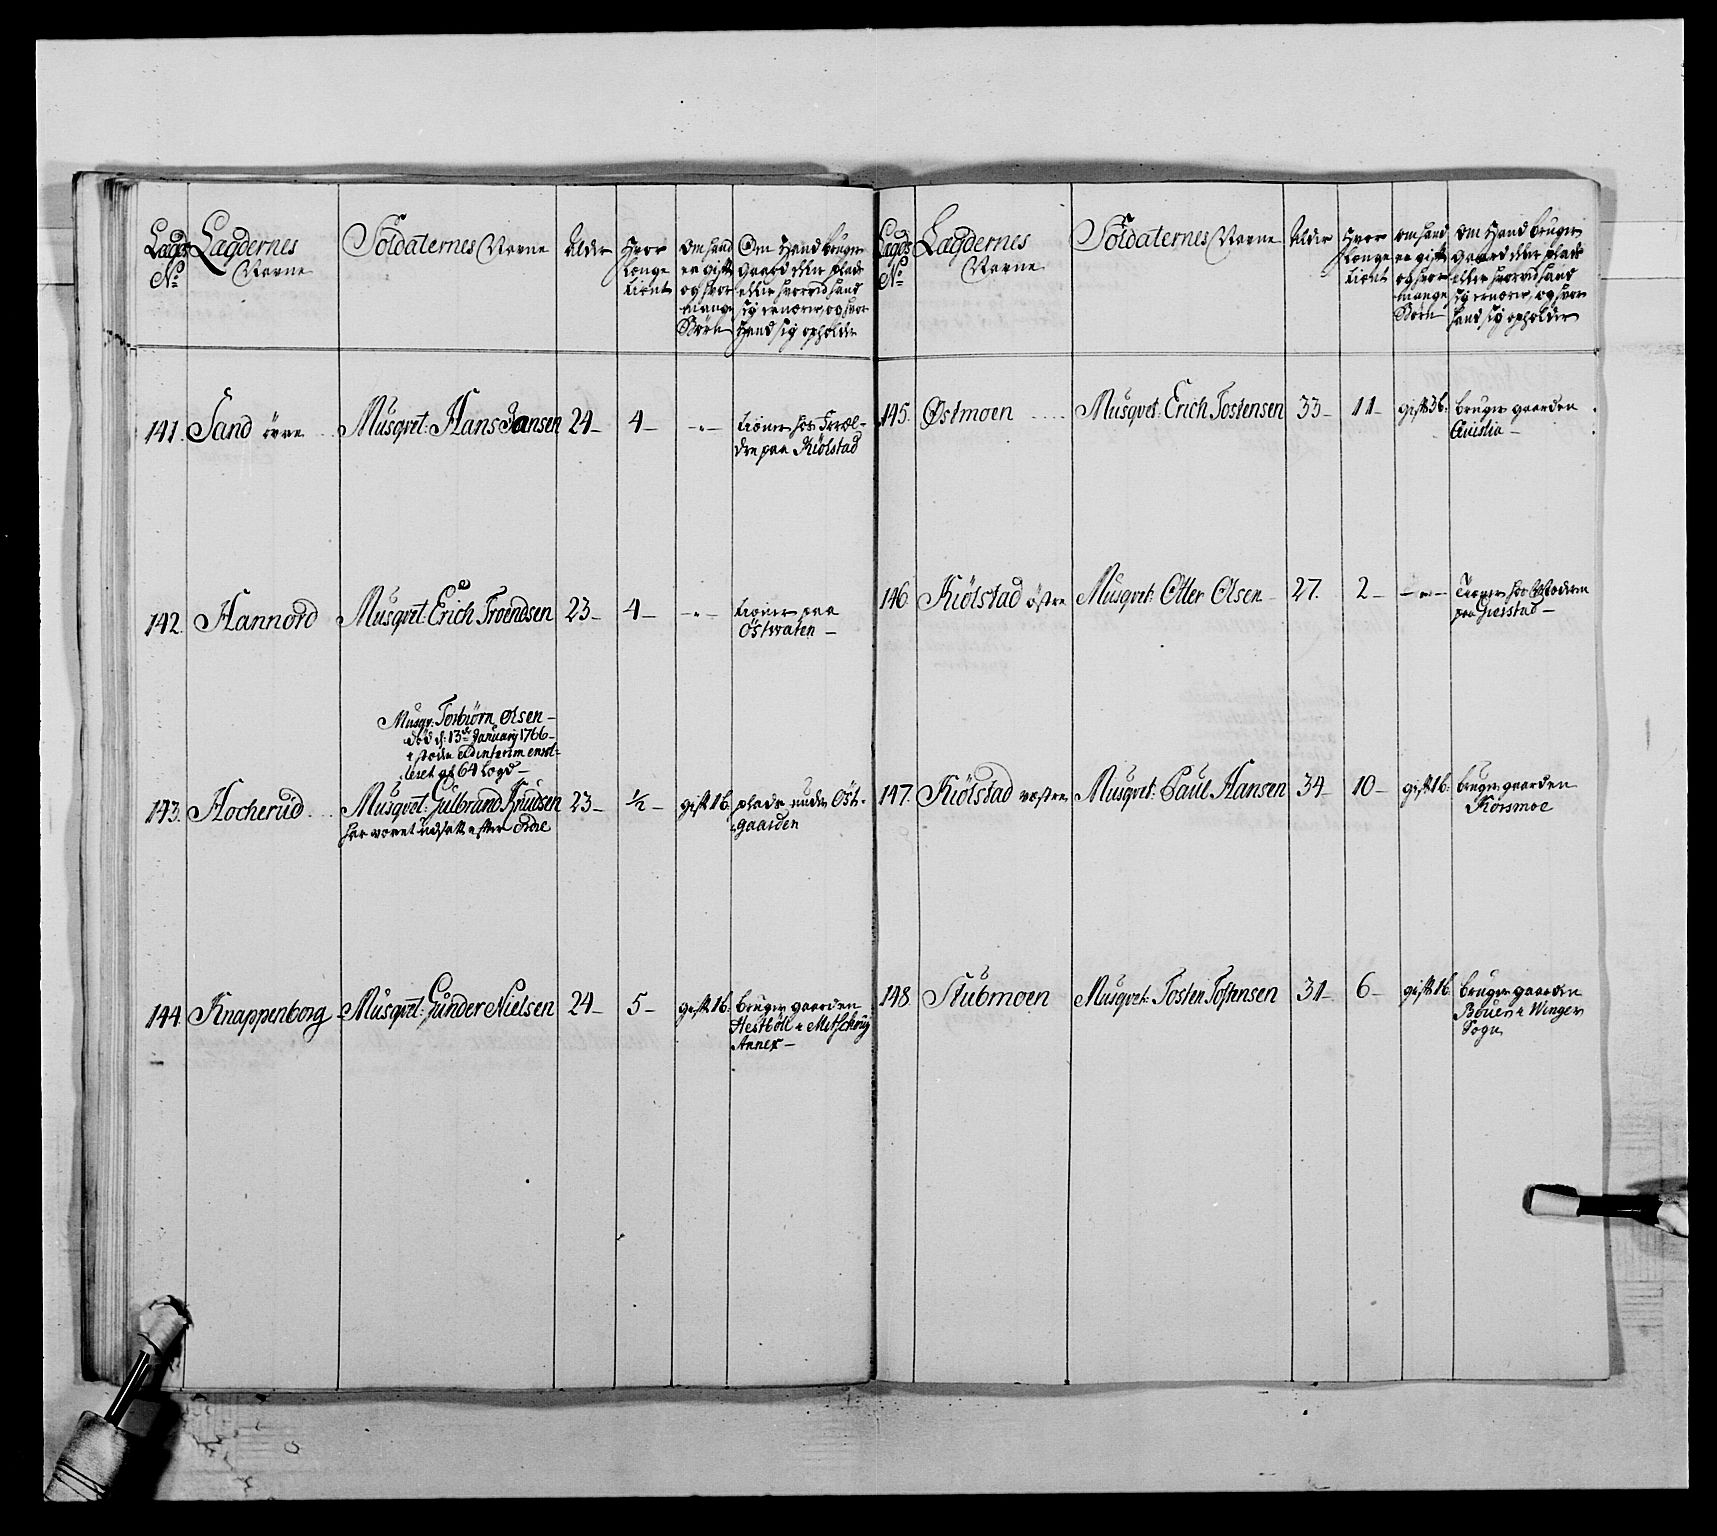 Lægds
No
Lægdernes
Navne
Soldaternes Navne
Alder
Hvor
længe
tient
Om hand
er gift
og hvor
mange
Børn
Om Hand bruger
Gaard eller plads
eller hvorved hand
sig ernærer, og hvor
Hand sig opholder
141. Sand övre Musqvet: Hans Jansen 24 4 - " - tiener hos Foræl-
dre paa Kiölstad
142. Hannord Musqvet: Erich Troendsen 23 4 - " - tiener paa
Östwaten
Musqv: Torbiörn Olsen
död d: 13de January 1766
i steden ad interim enrol-
leret af 64 Lægd
143. Hocherud Musqvet: Gulbrand Knudsen 23 ½ gift 1b. plads under Öst-
gaarden
har været udsatt efter Ordre
144 Knappenborg Musqvet: Gunder Nielsen 24 5 gift 1b. bruger gaarden
Hestböll i
Annex
Lægds
No
Lægdernes
Navne
Soldaternes Navne
Alder
Hvor
længe
tient
om hand
er gift
og hvor
mange
Börn
Om Hand bruger
Gaard eller plads
eller hvorved hand
sig ernærer, og hvor
hand sig opholder
145. Østmoen Musqvet: Erich Tostensen 33 11 gift 3b. bruger gaarden
146 Kiölstad östre Musqvet: Otter Olsen 27. 2 - " - Tiener hos Moderen
paa Gierstad
147. Kiölstad væstre Musqvet: Paul Hansen 34 10 gift 1b. bruger gaarden
Korsmoe
148 Stubmoen Musqvet: Tosten Tostensen 31 6 gift 1b bruger gaarden
Bouer i Winger
Sogn